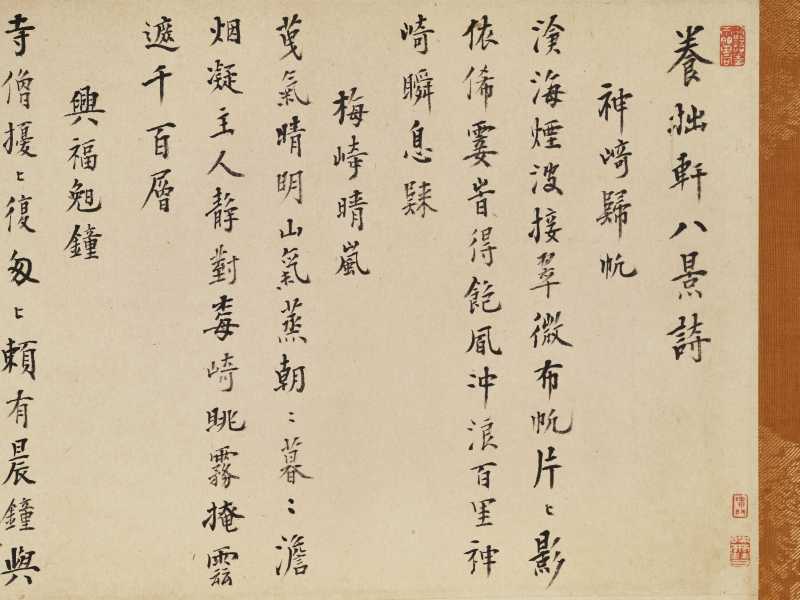 養拙軒八景詩
神崎歸帆
滄海煙波接翠微布帆片〻影
依俙霎旹得飽風冲浪百里神
崎瞬息歸
梅崎晴嵐
氣晴明山氣蒸朝〻暮〻澹
烟凝主人静對梅崎眺霧掩雲
遮千百層
興福晚鐘
寺僧擾〻復匆〻頼有晨鐘與